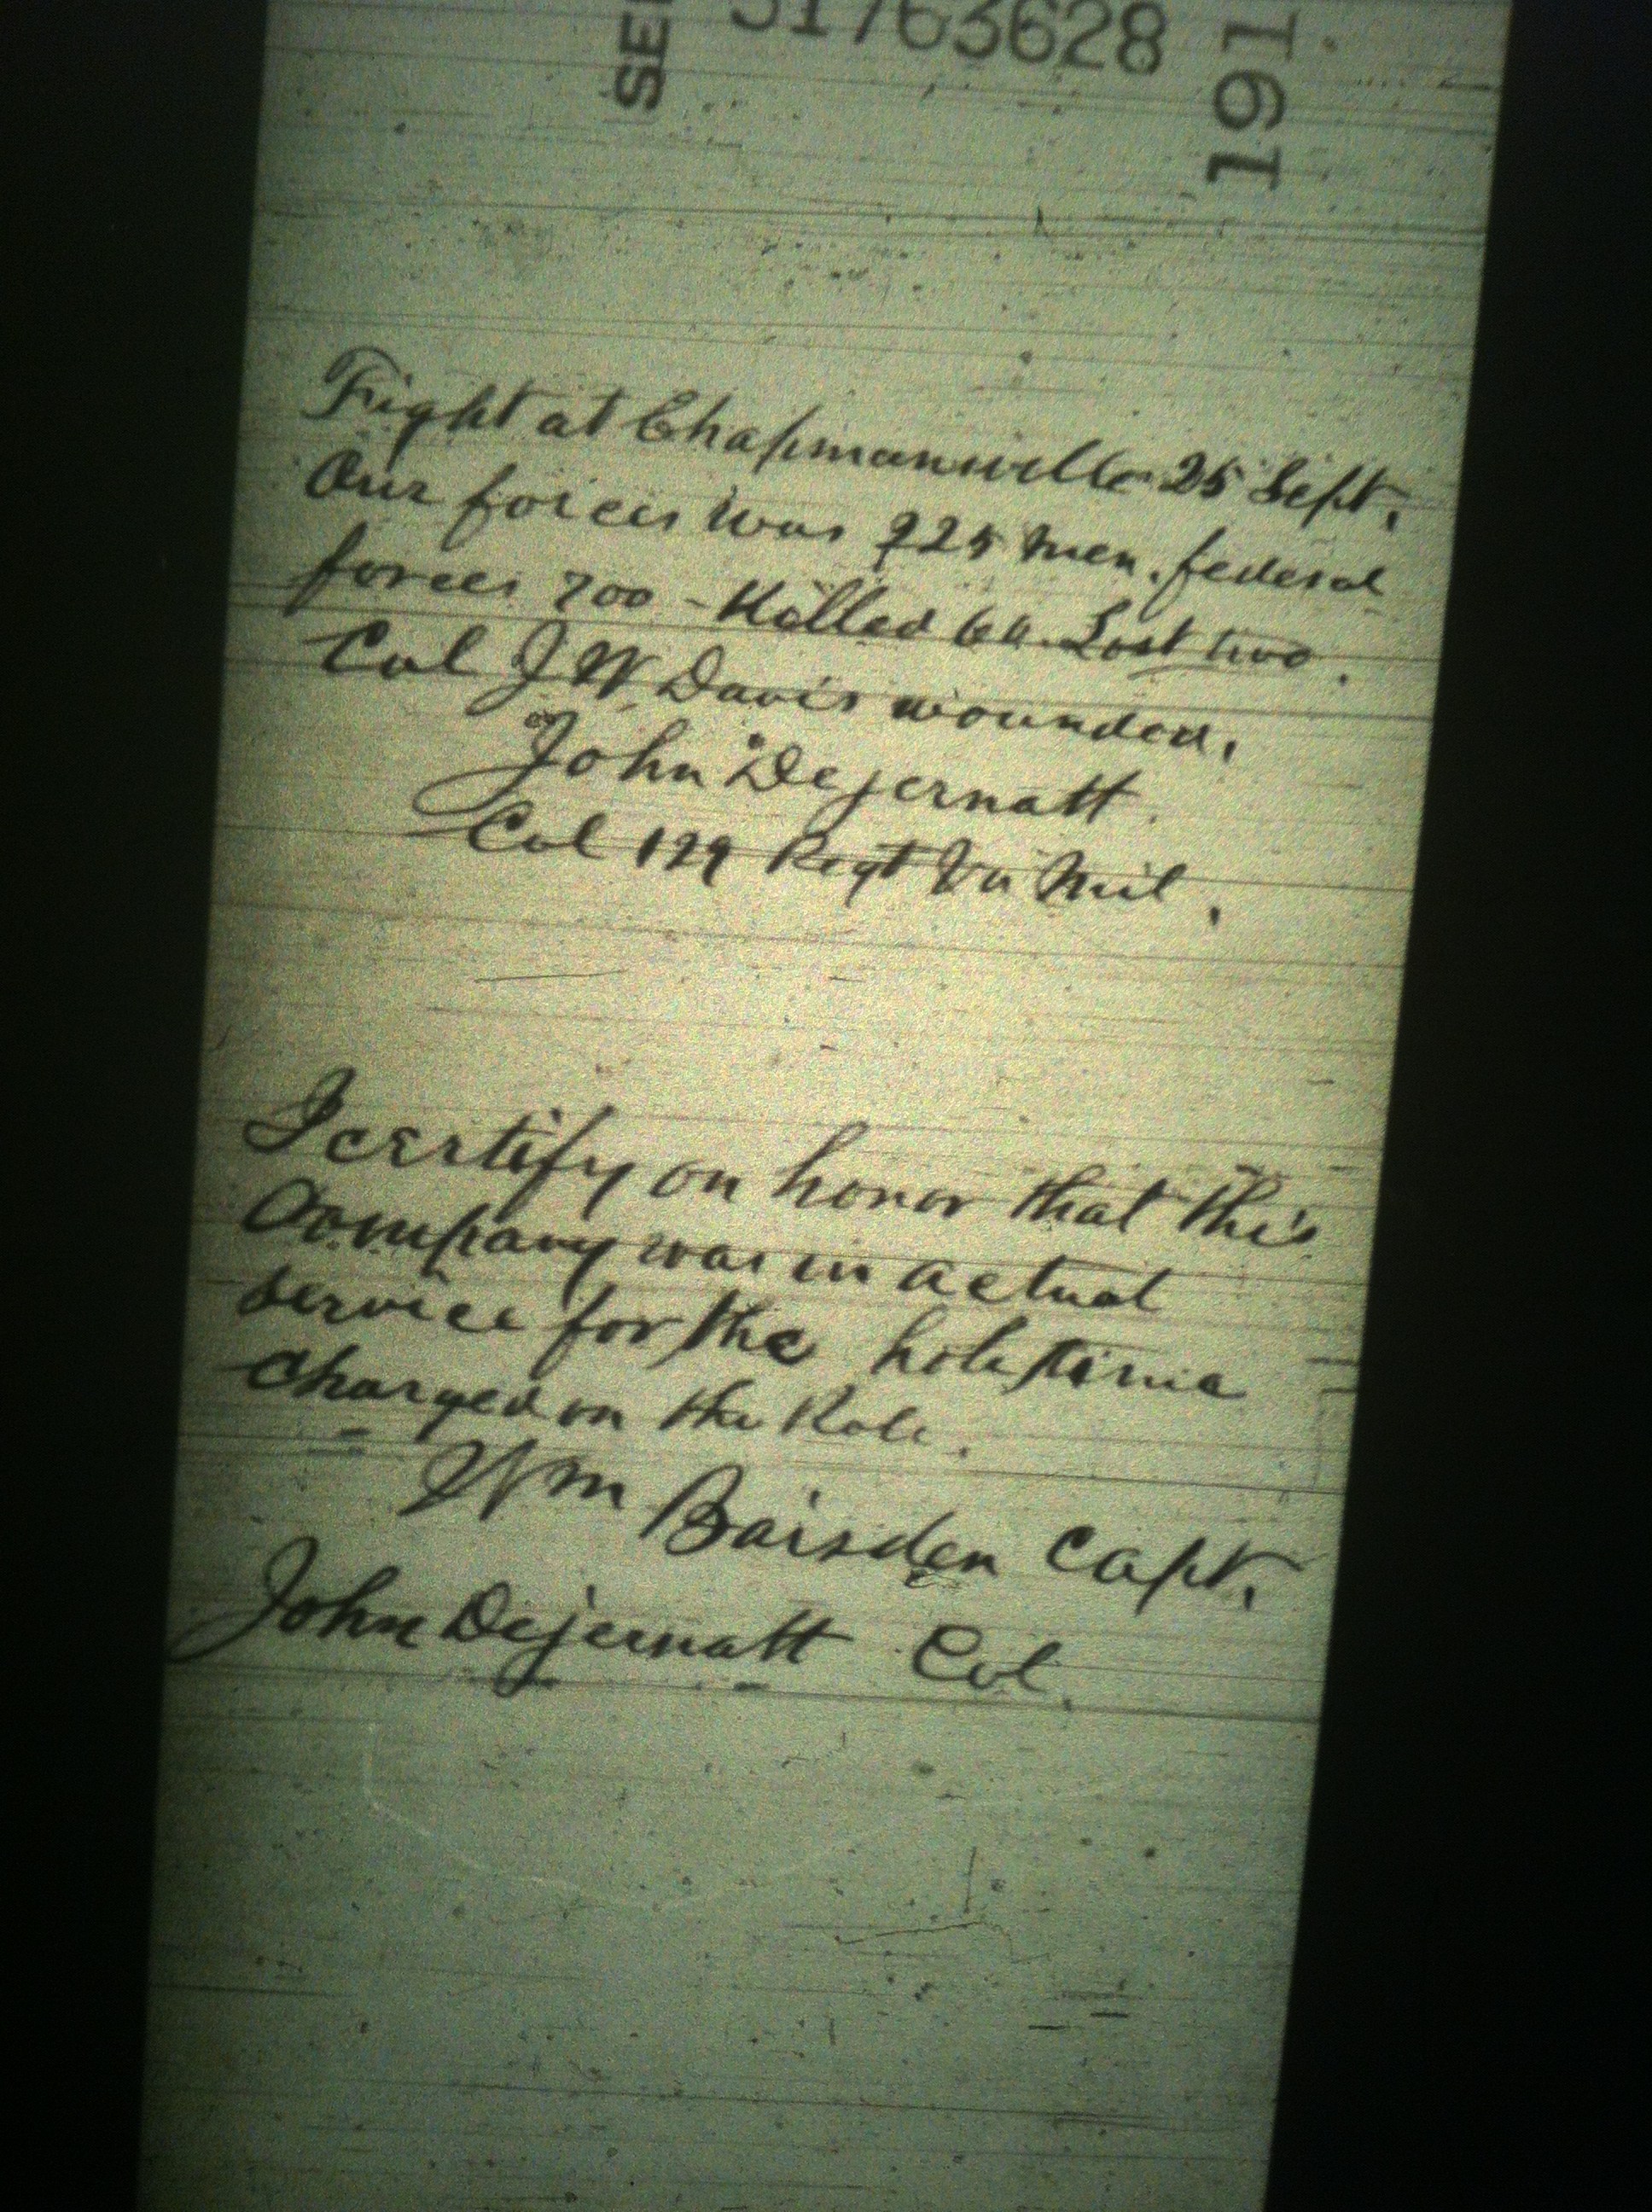 SE
51763628
191
Fight at Chapmanville 25 Sept.
Our forces was 225 men. federal
forces 700 - Killed 60. Lost two.
Col J. W. Davis wounded.
John Dejernatt.
Col 129 Regt Va Mil.
I certify on honor that this
Company was in actual
service for the hole time
charged on the Role.
Wm Baisden Capt.
John Dejernatt Col.